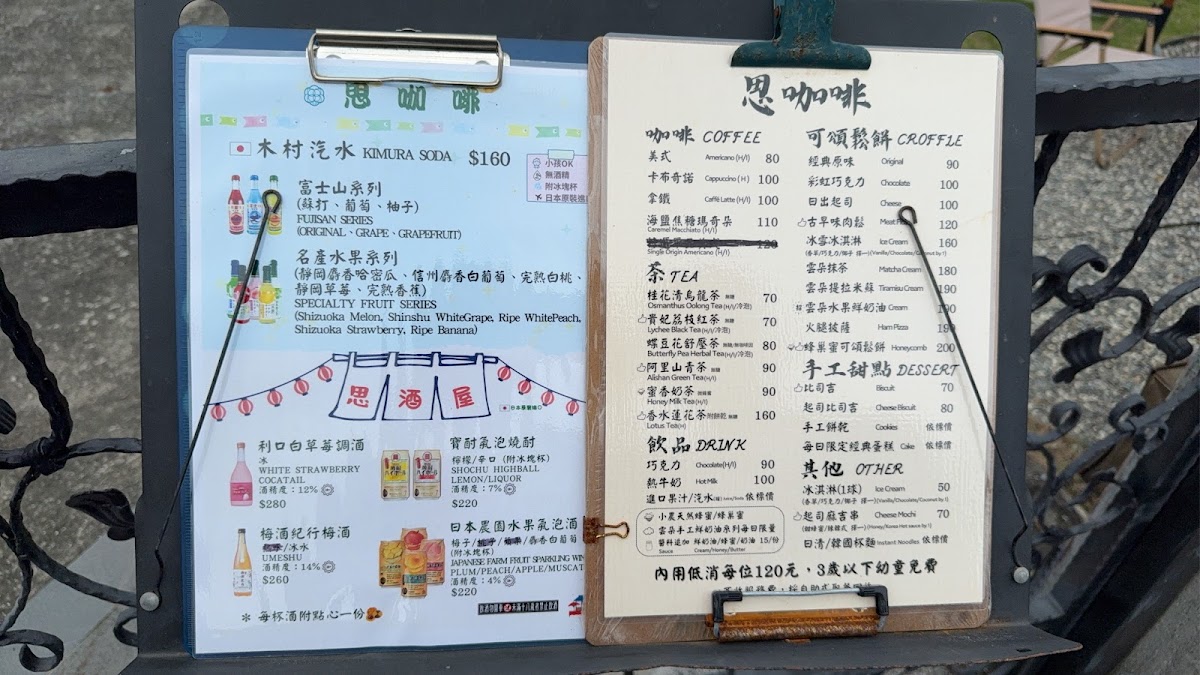 思咖啡
木村汽水 KIMURA SODA $160
小孩OK
無酒精
附冰塊杯
日本原裝進
富士山系列
(蘇打、葡萄、柚子)
FUJISAN SERIES
(ORIGINAL、GRAPE、GRAPEFRUIT)
名產水果系列
(靜岡麝香哈密瓜、信州麝香白葡萄、完熟白桃、
靜岡草莓、完熟香蕉)
SPECIALTY FRUIT SERIES
(Shizuoka Melon, Shinshu WhiteGrape, Ripe WhitePeach,
Shizuoka Strawberry, Ripe Banana)
思酒屋
利口白草莓調酒
冰
WHITE STRAWBERRY
COCATAIL
酒精度：12%
$280
寶酎氣泡燒酎
檸檬/辛口 (附冰塊杯)
SHOCHU HIGHBALL
LEMON/LIQUOR
酒精度：7%
$220
梅酒紀行梅酒
/冰水
UMESHU
酒精度：14%
$260
日本農園水果氣泡酒
梅子/ /麝香白葡萄
(附冰塊杯)
JAPANESE FARM FRUIT SPARKLING WIN
PLUM/PEACH/APPLE/MUSCAT
酒精度：4%
$220
＊ 每杯酒附點心一份
思咖啡
咖啡 COFFEE
美式 Americano (H/I) 80
卡布奇諾 Cappuccino (H) 100
拿鐵 Caffè Latte (H/I) 100
海鹽焦糖瑪奇朵 110
Caramel Macchiato (H/I)
120
Single Origin Americano (H/I)
茶 TEA
桂花清烏龍茶 無糖 70
Osmanthus Oolong Tea (H/I/冷泡)
貴妃荔枝紅茶 無糖 70
Lychee Black Tea (H/I/冷泡)
蝶豆花舒壓茶 80
Butterfly Pea Herbal Tea (H/I/冷泡)
阿里山青茶 無糖 90
Alishan Green Tea (H/I)
蜜香奶茶 90
Honey Milk Tea (H/I)
香水蓮花茶 附餅乾 無糖 160
Lotus Tea (H)
飲品 DRINK
巧克力 Chocolate (H/I) 90
熱牛奶 Hot Milk 100
進口果汁/汽水(罐) Juice/Soda 依標價
小農天然蜂蜜/蜂巢蜜
雲朵手工鮮奶油系列每日限量
醬料追加 鮮奶油/蜂蜜/奶油 15/份
Sauce Cream/Honey/Butter
可頌鬆餅 CROFFLE
經典原味 Original 90
彩虹巧克力 Chocolate 100
日出起司 Cheese 100
古早味肉鬆 Meat 120
冰雪冰淇淋 Ice Cream 160
(香草/巧克力/椰子 擇一) (Vanilla/Chocolate/Coconut by 1)
雲朵抹茶 Matcha Cream 180
雲朵提拉米蘇 Tiramisu Cream 190
雲朵水果鮮奶油 Cream 190
火腿披薩 Ham Pizza 190
蜂巢蜜可頌鬆餅 Honeycomb 200
手工甜點 DESSERT
比司吉 Biscuit 70
起司比司吉 Cheese Biscuit 80
手工餅乾 Cookies 依標價
每日限定經典蛋糕 Cake 依標價
其他 OTHER
冰淇淋(1球) Ice Cream 50
(香草/巧克力/椰子 擇一) (Vanilla/Chocolate/Coconut by 1)
起司麻吉串 Cheese Mochi 70
日清/韓國杯麵 Instant Noodles 依標價
內用低消每位120元，3歲以下幼童免費